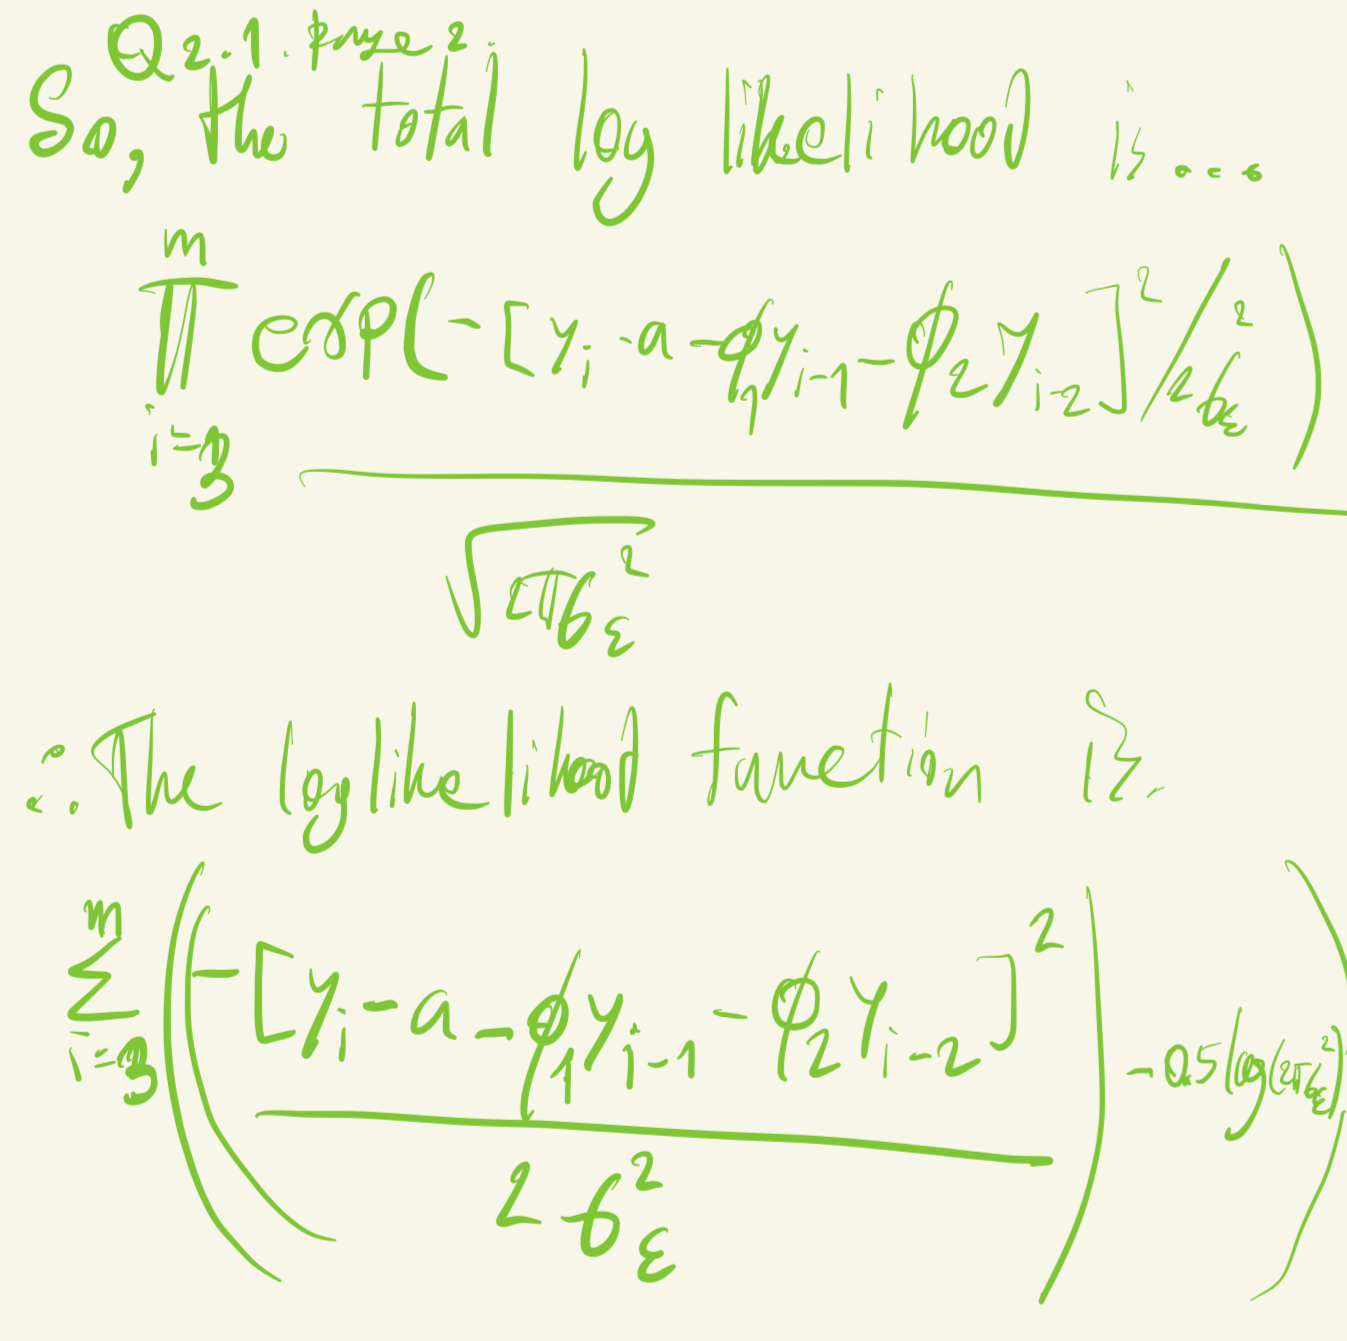 Q2.1. Page 2.
So, the total log likelihood is...
m
∏ exp(-[y_i - a - ϕ_1 y_{i-1} - ϕ_2 y_{i-2}]^2 / 2σ_ε^2)
i=3
√(2πσ_ε^2)
∴ The loglikelihood function is.
m
∑ ((-[y_i - a - ϕ_1 y_{i-1} - ϕ_2 y_{i-2}]^2) - 0.5 log(2πσ_ε^2))
i=3
2σ_ε^2